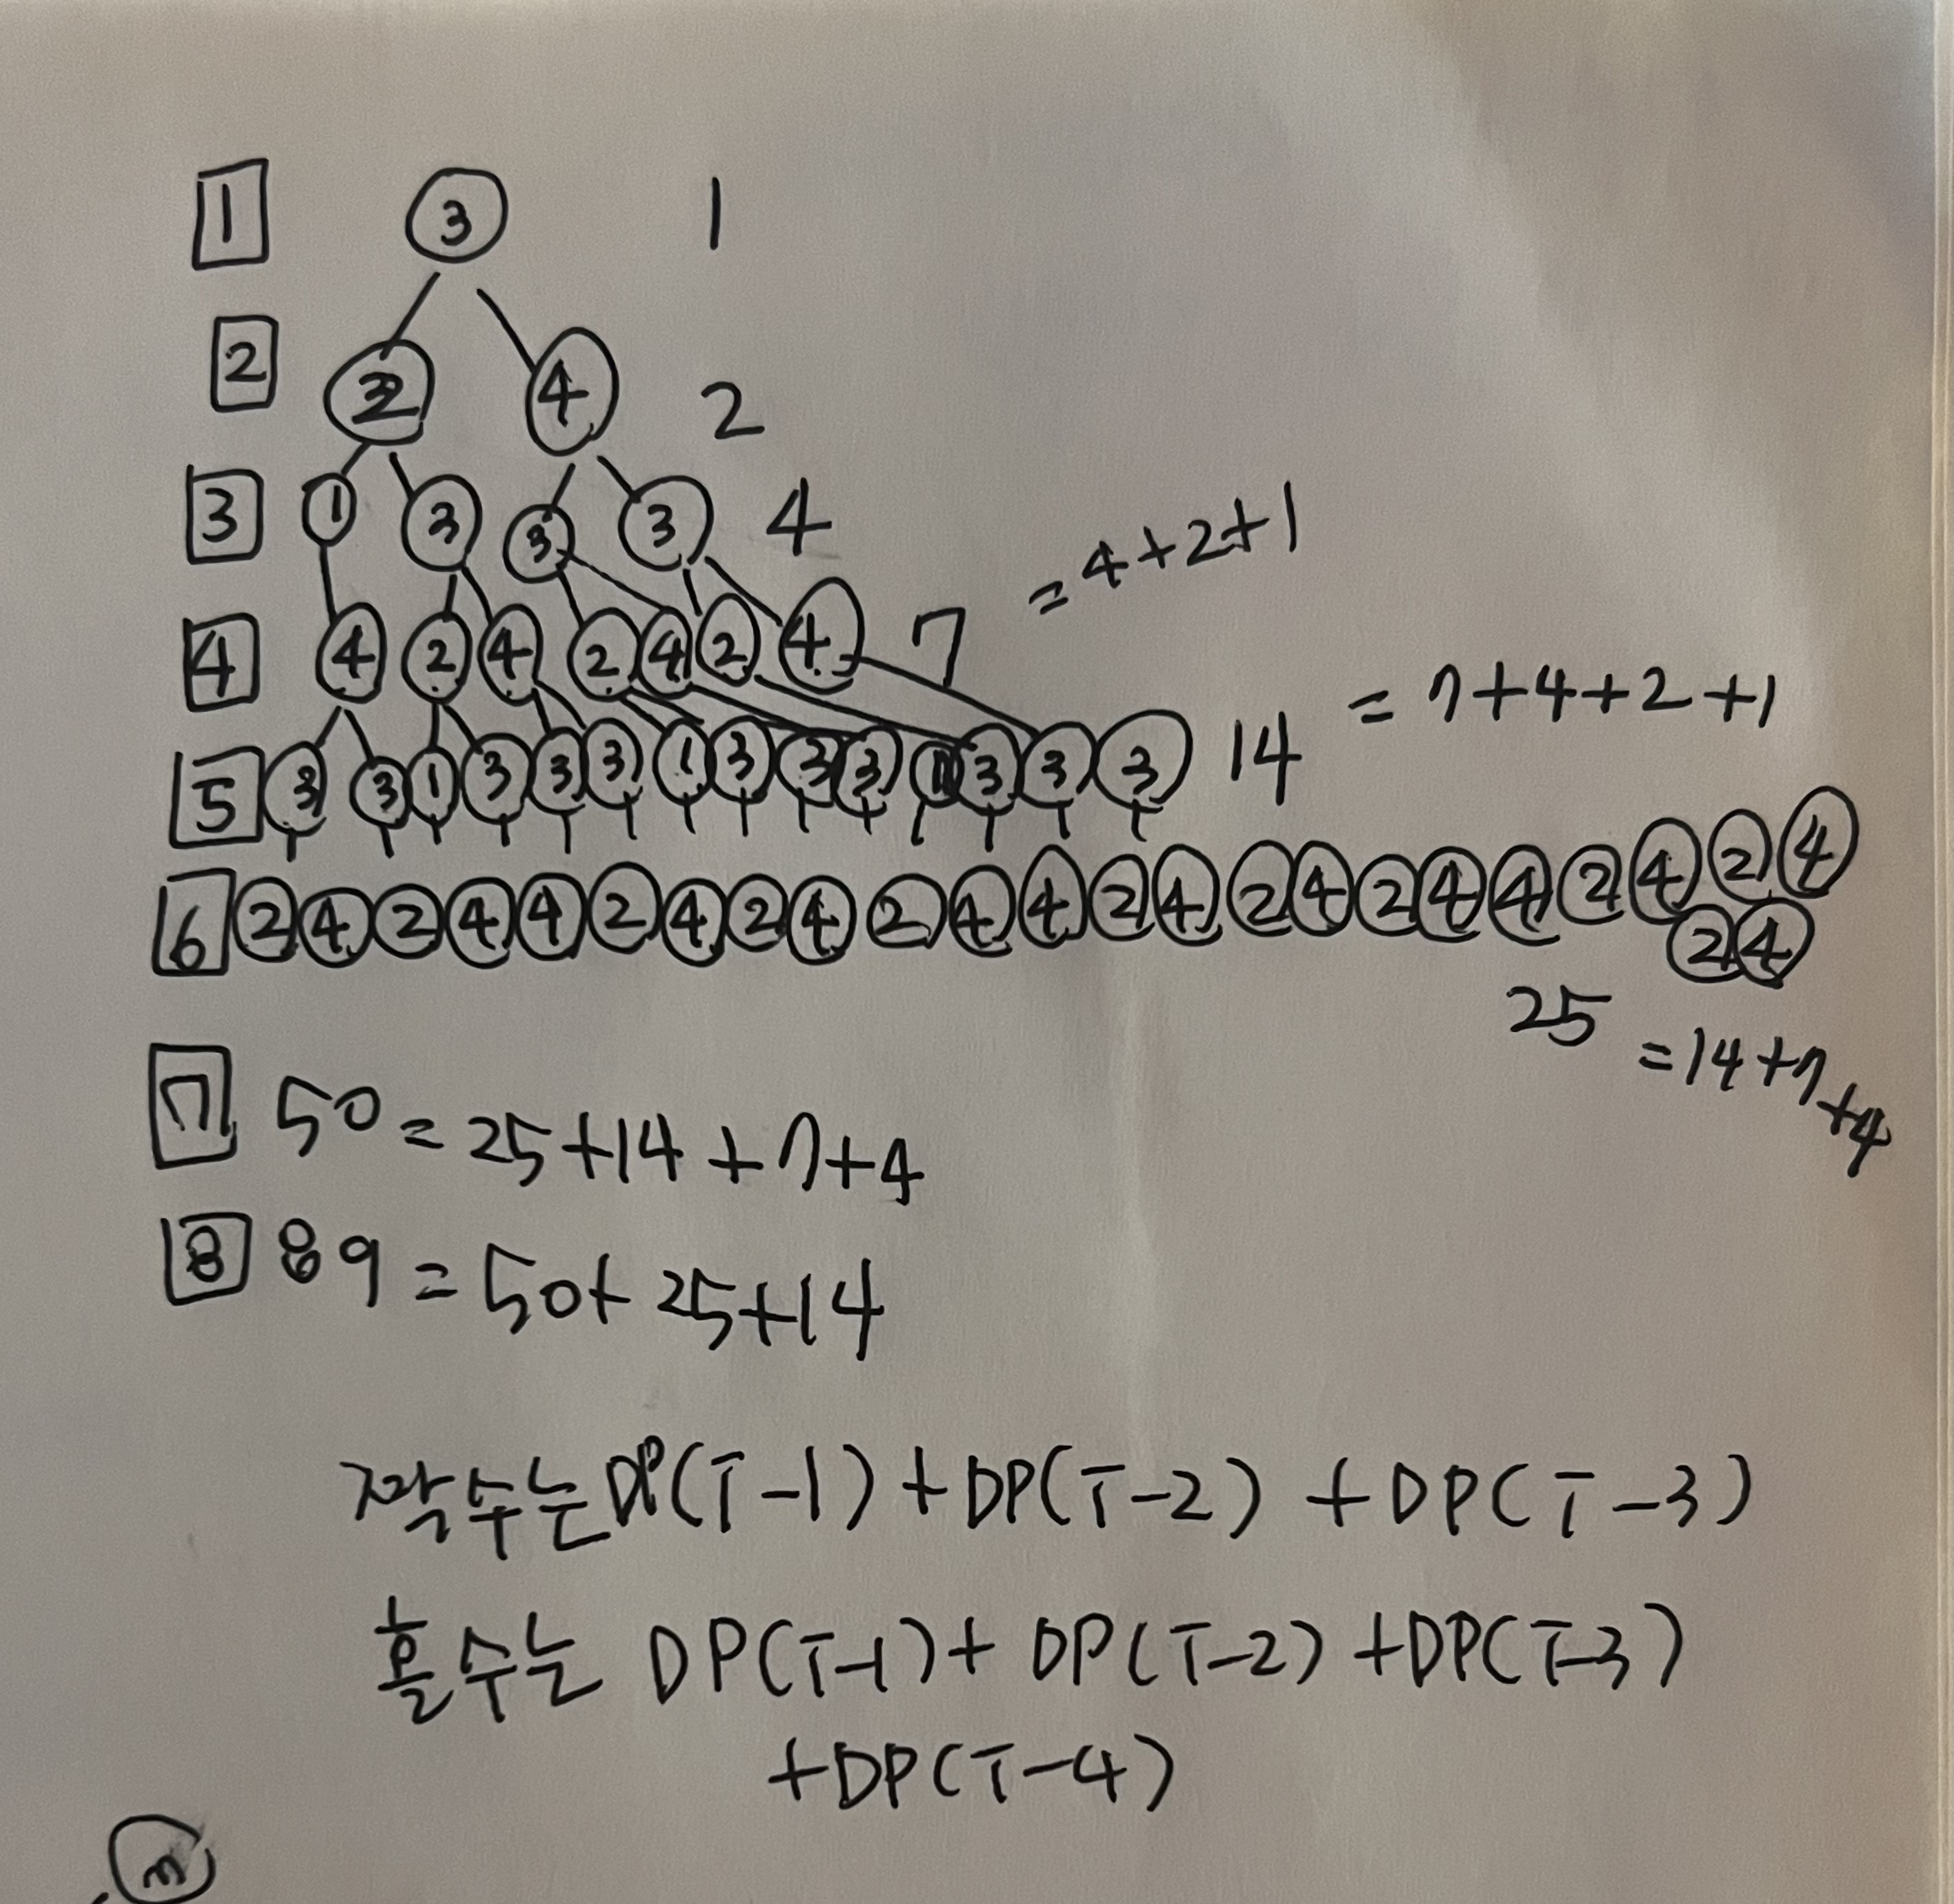 1 3 1
2 2 4 2
3 1 3 3 3 4
4 4 2 4 2 4 2 4 7 = 4+2+1
5 3 3 1 3 3 3 1 3 3 3 1 3 3 3 14 = 7+4+2+1
6 2 4 2 4 4 2 4 2 4 2 4 4 2 4 2 4 2 4 4 2 4 2 4
2 4
25 = 14+7+4
7 50 = 25+14+7+4
8 89 = 50+25+14
짝수는 DP(T-1)+DP(T-2)+DP(T-3)
홀수는 DP(T-1)+DP(T-2)+DP(T-3)
+DP(T-4)